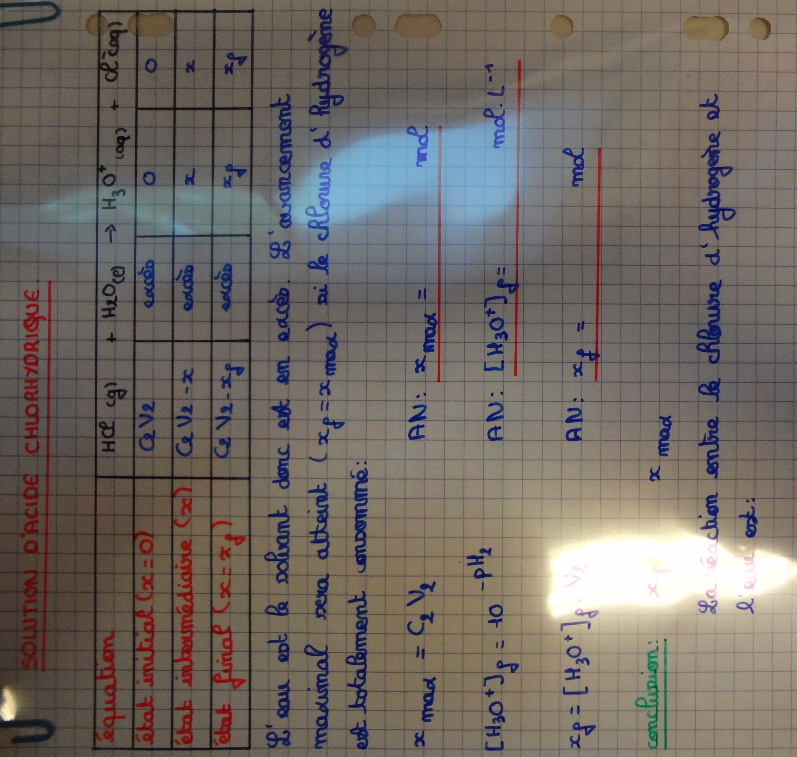 SOLUTION D'ACIDE CHLORHYDRIQUE.
équation HCl (g) + H2O(l) → H3O+(aq) + Cl-(aq)
état initial (x=0) C2V2 excès 0 0
état intermédiaire (x) C2V2-x excès x x
état final (x=xf) C2V2-xf excès xf xf
L'eau est le solvant donc est en excès. L'avancement
maximal sera atteint (xf=x max) si le chlorure d'hydrogène
est totalement consommé:
x max = C2V2 AN: x max = mol
[H3O+]f = 10 -pH2 AN: [H3O+]f = mol.L-1
xf = [H3O+]f.V2 AN: xf = mol
conclusion: xf x max
La réaction entre le chlorure d'hydrogène et
l'eau est: